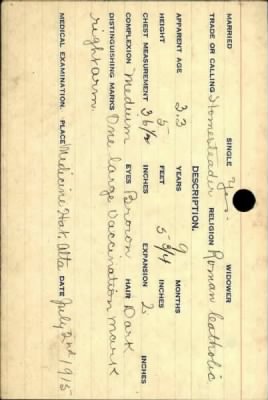 MARRIED SINGLE Yes. WIDOWER
TRADE OR CALLING Homesteader RELIGION Roman Catholic
DESCRIPTION.
APPARENT AGE 33 YEARS 9 MONTHS
HEIGHT 5 FEET 5 3/4 INCHES
CHEST MEASUREMENT 36 1/2 INCHES EXPANSION 2 INCHES
COMPLEXION Medium EYES Brown HAIR Dark
DISTINGUISHING MARKS One large Vaccination mark
right arm.
MEDICAL EXAMINATION. PLACE Medicine Hat, Alta DATE July 2nd 1915